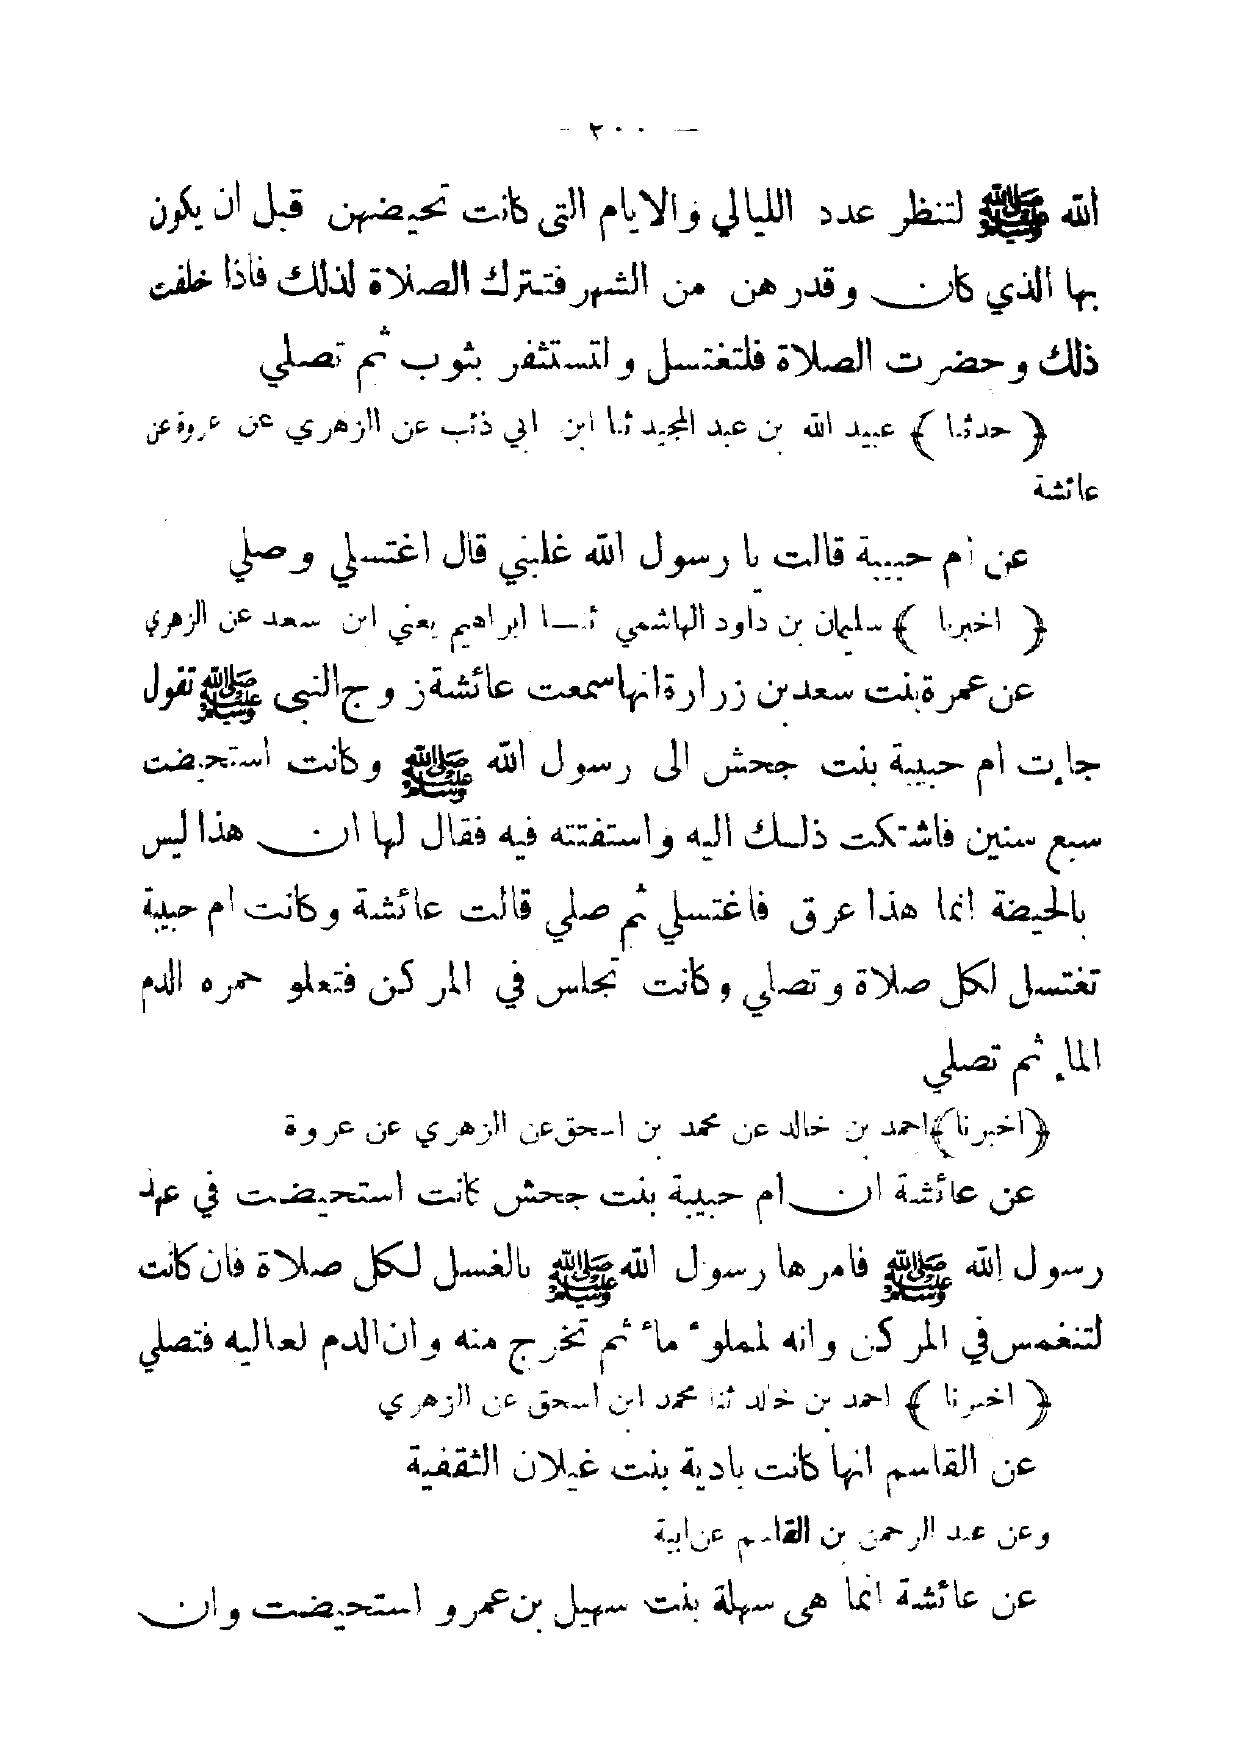 — ٢٠٠ —
الله ﷺ لتنظر عدد الليالي والايام التى كانت تحيضهن قبل ان يكون
بها الذي كان وقدر هن من الشهر فتترك الصلاة لذلك فاذا خلفت
ذلك وحضرت الصلاة فلتغتسل ولتستثفر بثوب ثم تصلي
﴿ حدثنا ﴾ عبيد الله بن عبد المجيد ثنا ابن ابي ذئب عن الزهري عن عروة عن
عائشة
عن ام حبيبة قالت يا رسول الله غلبني قال اغتسلي وصلي
﴿ اخبرنا ﴾ سليمان بن داود الهاشمي ثنا ابراهيم يعني ابن سعد عن الزهري
عن عمرة بنت سعد بن زرارة انها سمعت عائشة زوج النبى ﷺ تقول
جاءت ام حبيبة بنت جحش الى رسول الله ﷺ وكانت استحيضت
سبع سنين فاشتكت ذلك اليه واستفتته فيه فقال لها ان هذا ليس
بالحيضة انما هذا عرق فاغتسلي ثم صلي قالت عائشة وكانت ام حبيبة
تغتسل لكل صلاة وتصلي وكانت تجلس في المركن فتعلو حمره الدم
الماء ثم تصلي
﴿اخبرنا﴾ احمد بن خالد عن محمد بن اسحق عن الزهري عن عروة
عن عائشة ان ام حبيبة بنت جحش كانت استحيضت في عهد
رسول الله ﷺ فامرها رسول الله ﷺ بالغسل لكل صلاة فان كانت
لتنغمس في المركن وانه لملوء ماء ثم تخرج منه وان الدم لعاليه فتصلي
﴿ اخبرنا ﴾ احمد بن خالد ثنا محمد ابن اسحق عن الزهري
عن القاسم انها كانت بادية بنت غيلان الثقفية
وعن عبد الرحمن بن القاسم عن ابية
عن عائشة انما هى سهلة بنت سهيل بن عمرو استحيضت وان